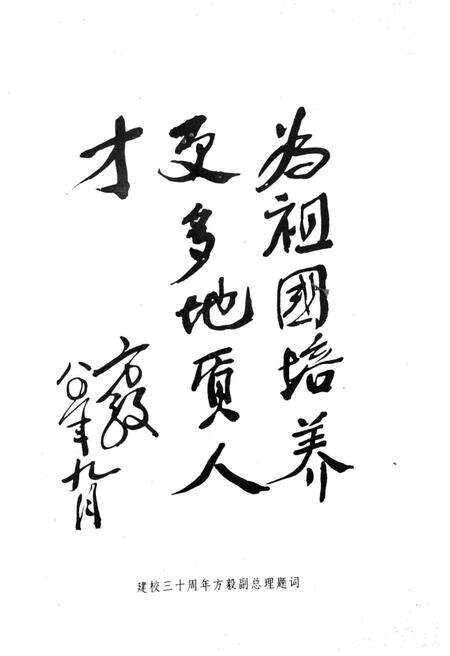 为祖國培养
更多地质人
才
方毅
八〇年九月
建校三十周年方毅副总理题词